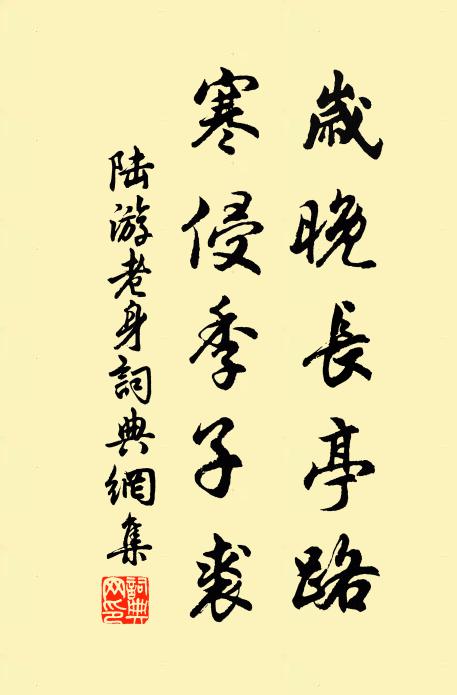 歲晚長亭路
寒侵季子裘
陆游老身詞典網集
詞典网印